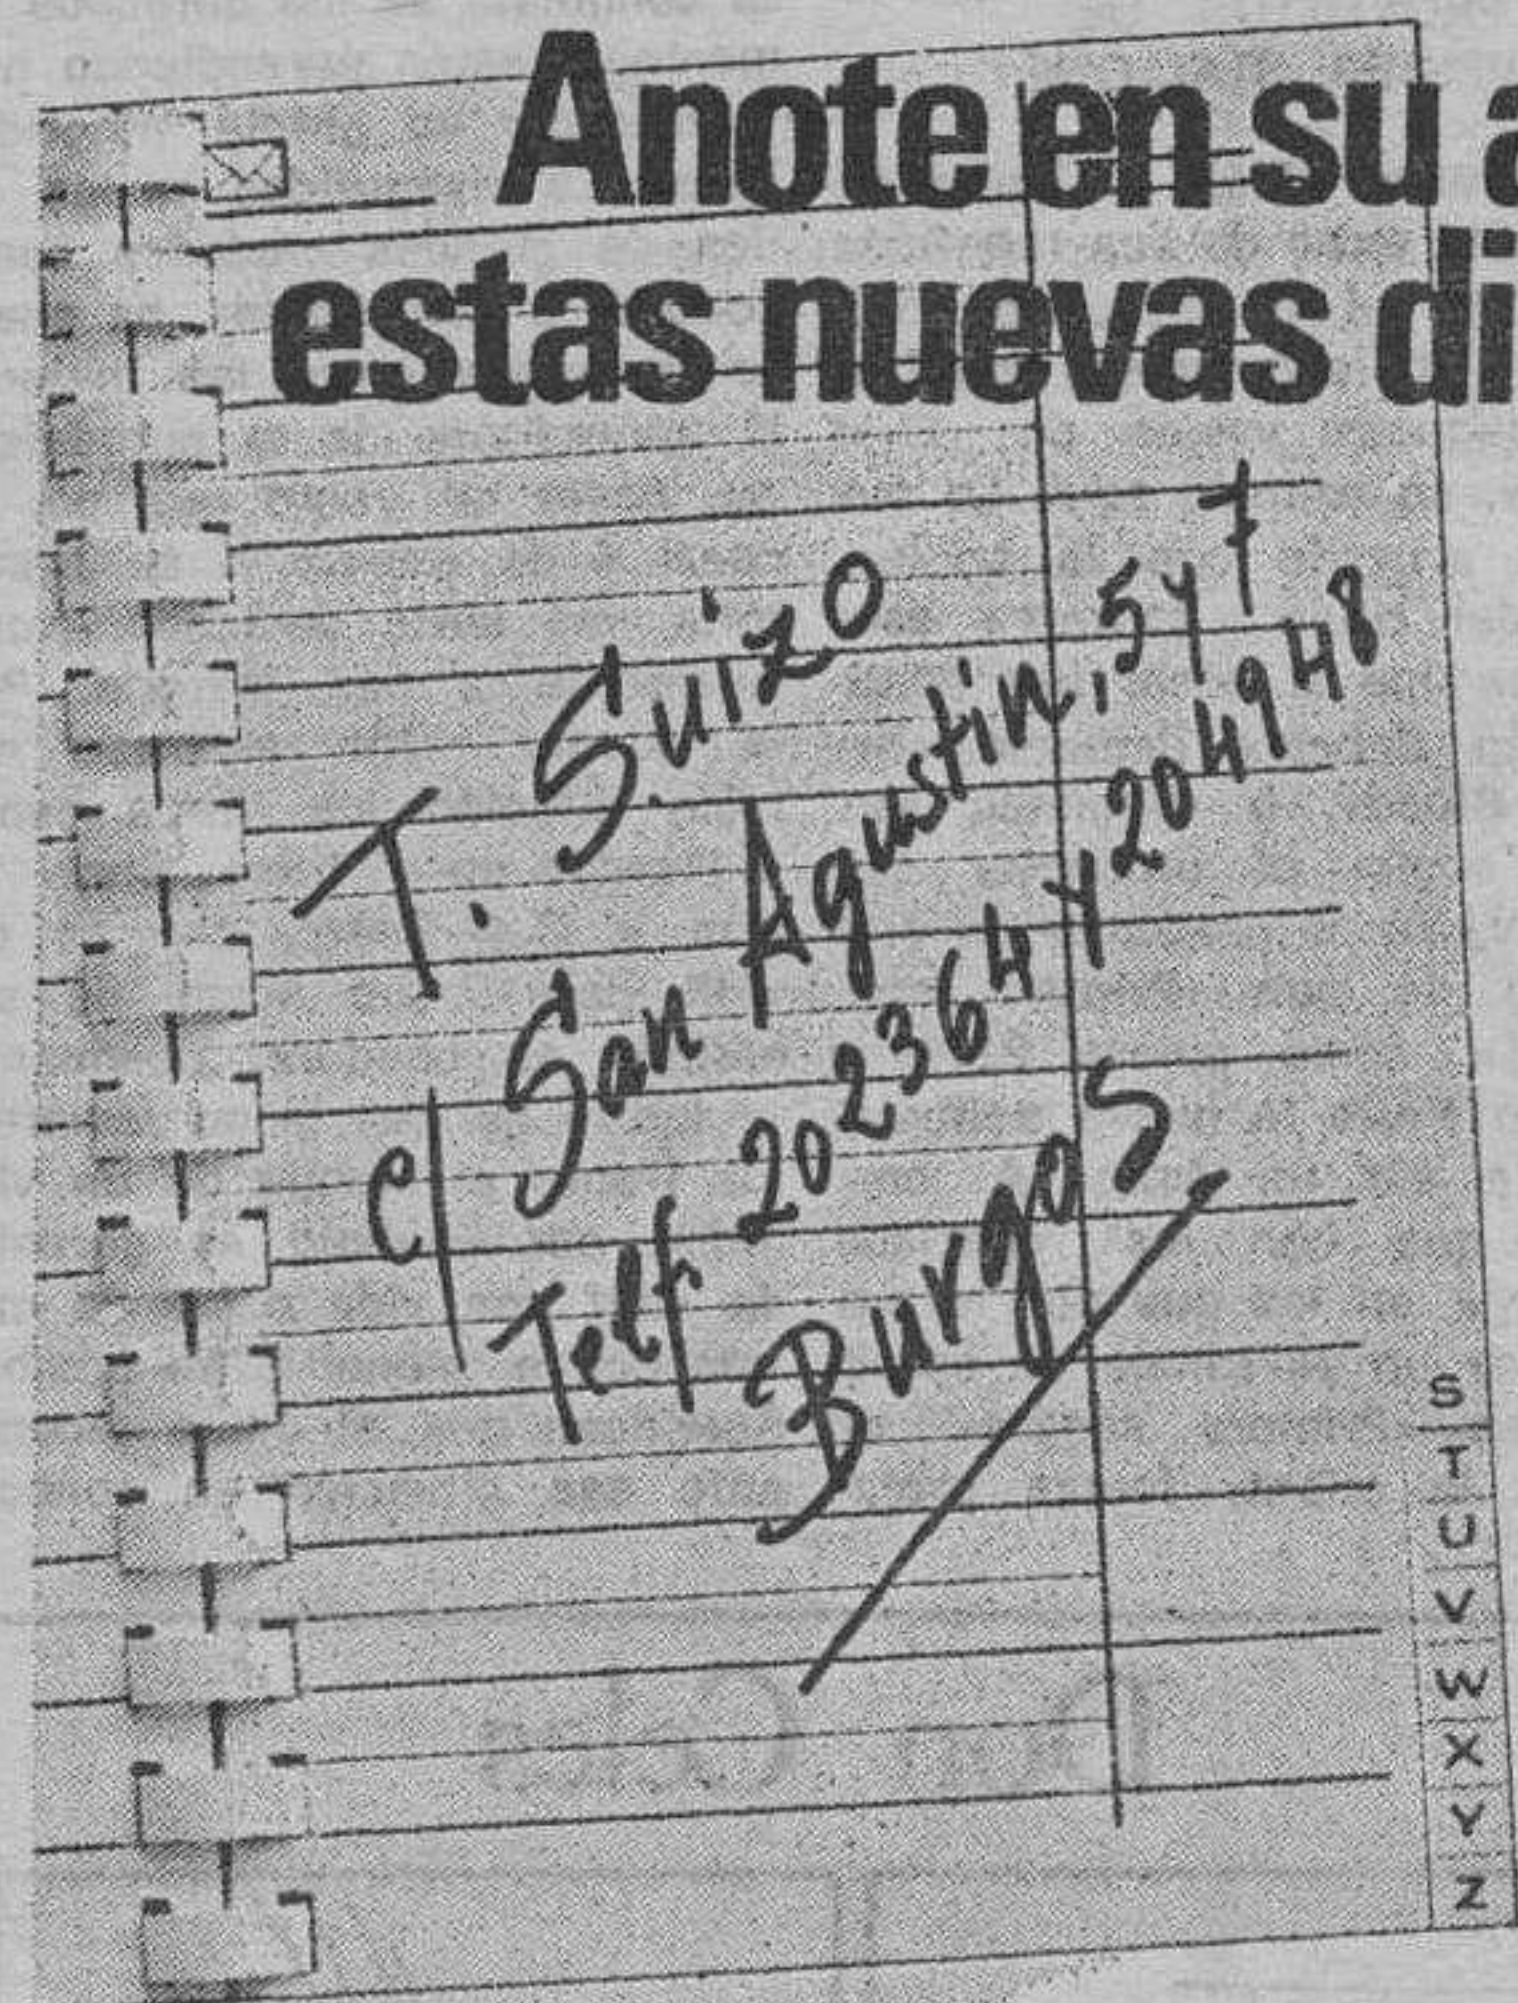 Anote en su a
estas nuevas di
T. Suizo
c/ San Agustin, 5 y 7
Telf 202364 y 204948
Burgos
S
T
U
V
W
X
Y
Z